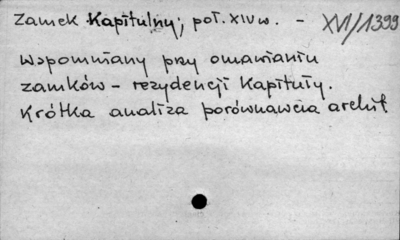 Zamek Kapitulny; poł. XIV w. - XVI/1399
Wspomniany przy omawianiu
zamków - rezydencji Kapituły.
Krótka analiza porównawcza archit